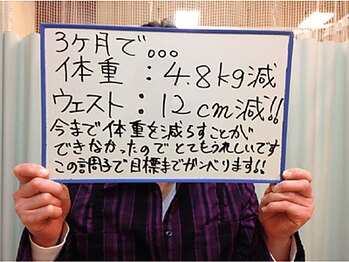 3ヶ月で...
体重：4.8kg減
ウェスト：12cm減!!
今まで体重を減らすことが
できなかったので とてもうれしいです
この調子で目標までガンバります!!